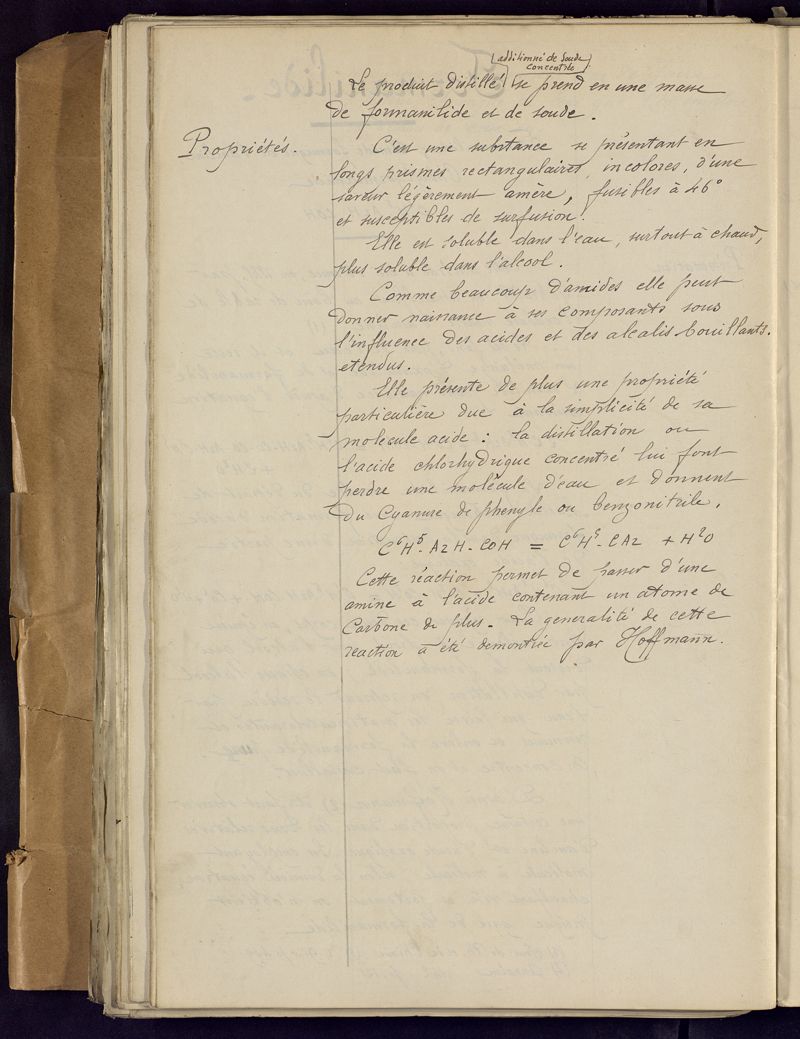 additionné de soude
concentrée
Le produit distillé se prend en une masse
de formanilide et de soude.
Propriétés.
C'est une substance se présentant en
longs prismes rectangulaires, incolores, d'une
saveur légèrement amère, fusibles à 46°
et susceptibles de surfusion.
Elle est soluble dans l'eau, surtout à chaud,
plus soluble dans l'alcool.
Comme beaucoup d'amides elle peut
donner naissance à ses composants sous
l'influence des acides et des alcalis bouillants.
etendus.
Elle présente de plus une propriété
particulière due à la simplicité de sa
molecule acide : la distillation ou
l'acide chlorhydrique concentré lui font
perdre une molécule d'eau et donnent
du Cyanure de phenyle ou benzonitrile.
C⁶H⁵-AzH-COH = C⁶H⁵-CAz + H²O
Cette réaction permet de passer d'une
amine à l'acide contenant un atome de
Carbone de plus. La generalité de cette
reaction a été demontrée par Hoffmann.